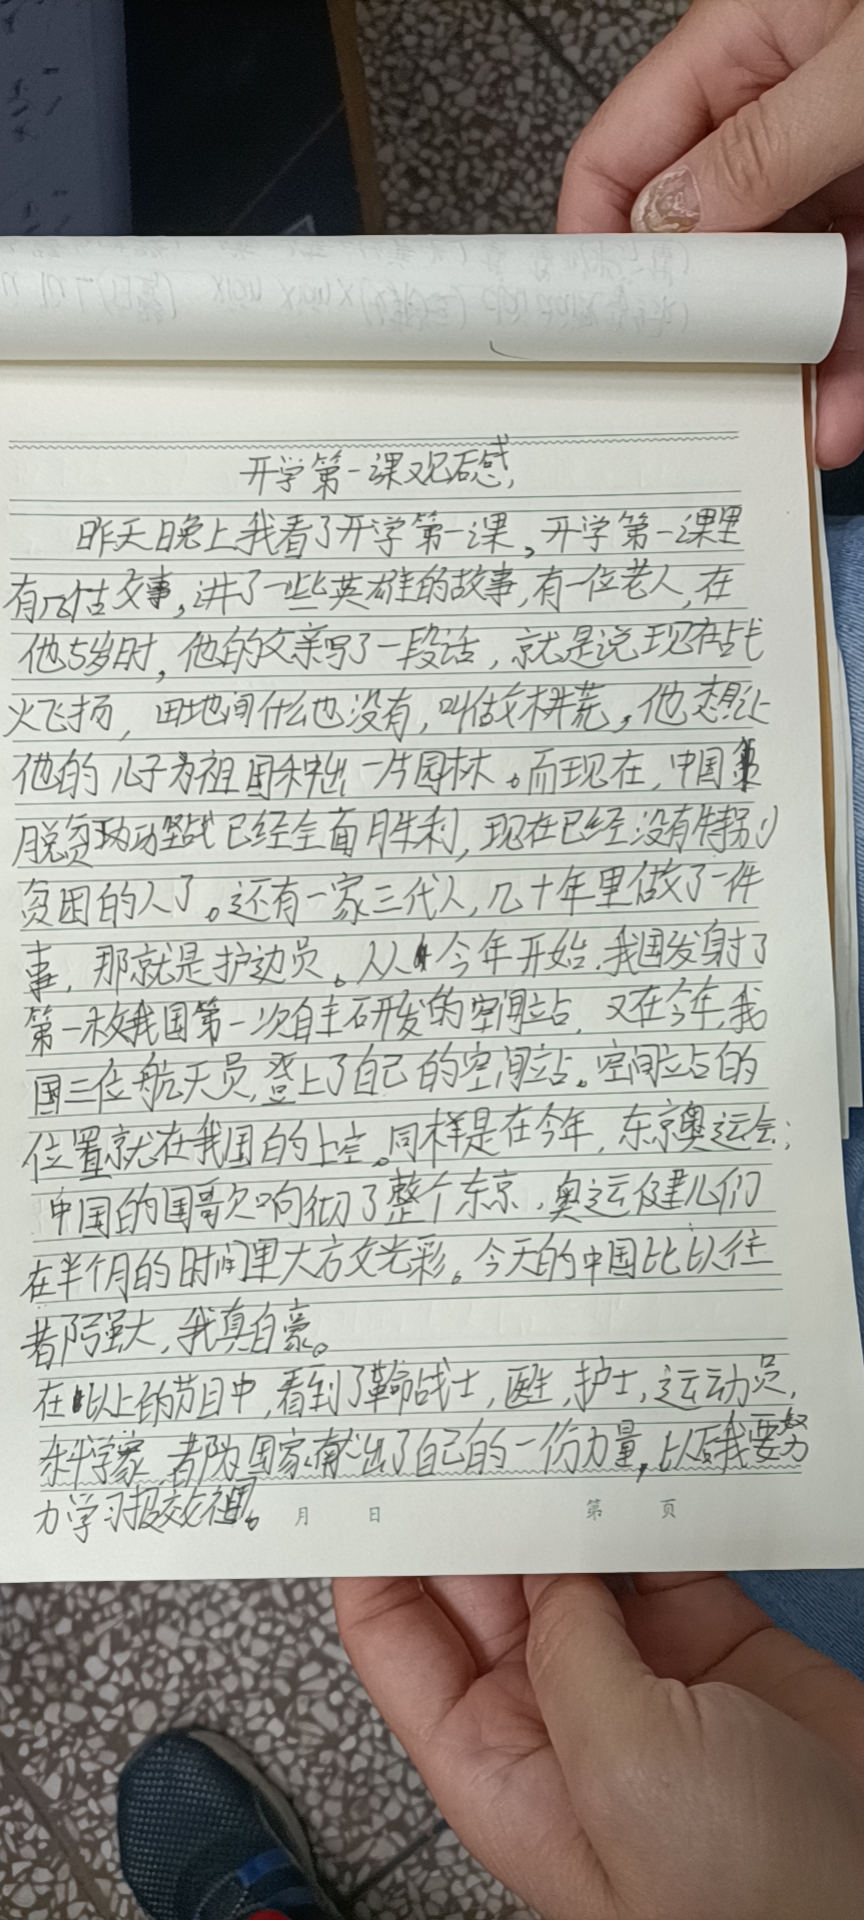 开学第一课观后感
昨天晚上我看了开学第一课,开学第一课里
有几故事,讲了一些英雄的故事,有一位老人,在
他5岁时,他的父亲写了一段话,就是说现在战
火飞扬,田地间什么也没有,叫做林荒,他想让
他的儿子为祖国种出一片园林。而现在,中国
脱贫攻坚战已经全面胜利,现在已经没有特别
贫困的人了。还有一家三代人,几十年里做了一件
事,那就是护边员。从今年开始,我国发射了
第一枚我国第一次自主研发的空间站,又在今年,我
国三位航天员,登上了自己的空间站。空间站的
位置就在我国的上空。同样是在今年,东京奥运会;
中国的国歌响彻了整个东京,奥运健儿们
在半个月的时间里大放光彩。今天的中国比以往
都强大,我真自豪。
在以上的节目中,看到了革命战士,医生,护士,运动员,
科学家,都为国家献出了自己的一份力量,以后我要努
力学习报效祖国。
月 日 第 页